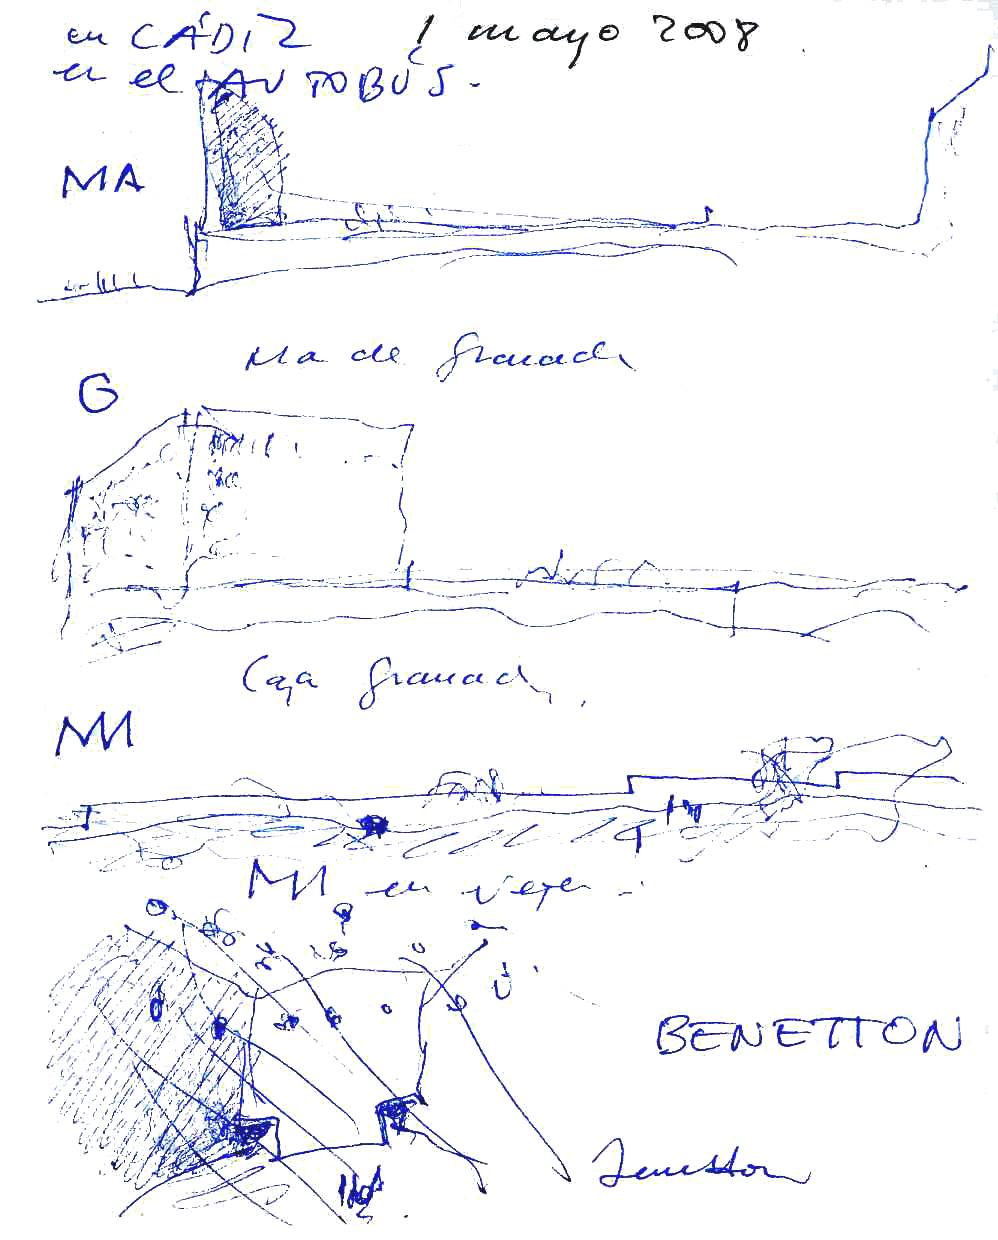 en CÁDIZ 1 mayo 2008
en el AUTOBÚS -
MA
MA de Granada
G
Caja Granada
MA en Vejer -
BENETTON
Benetton